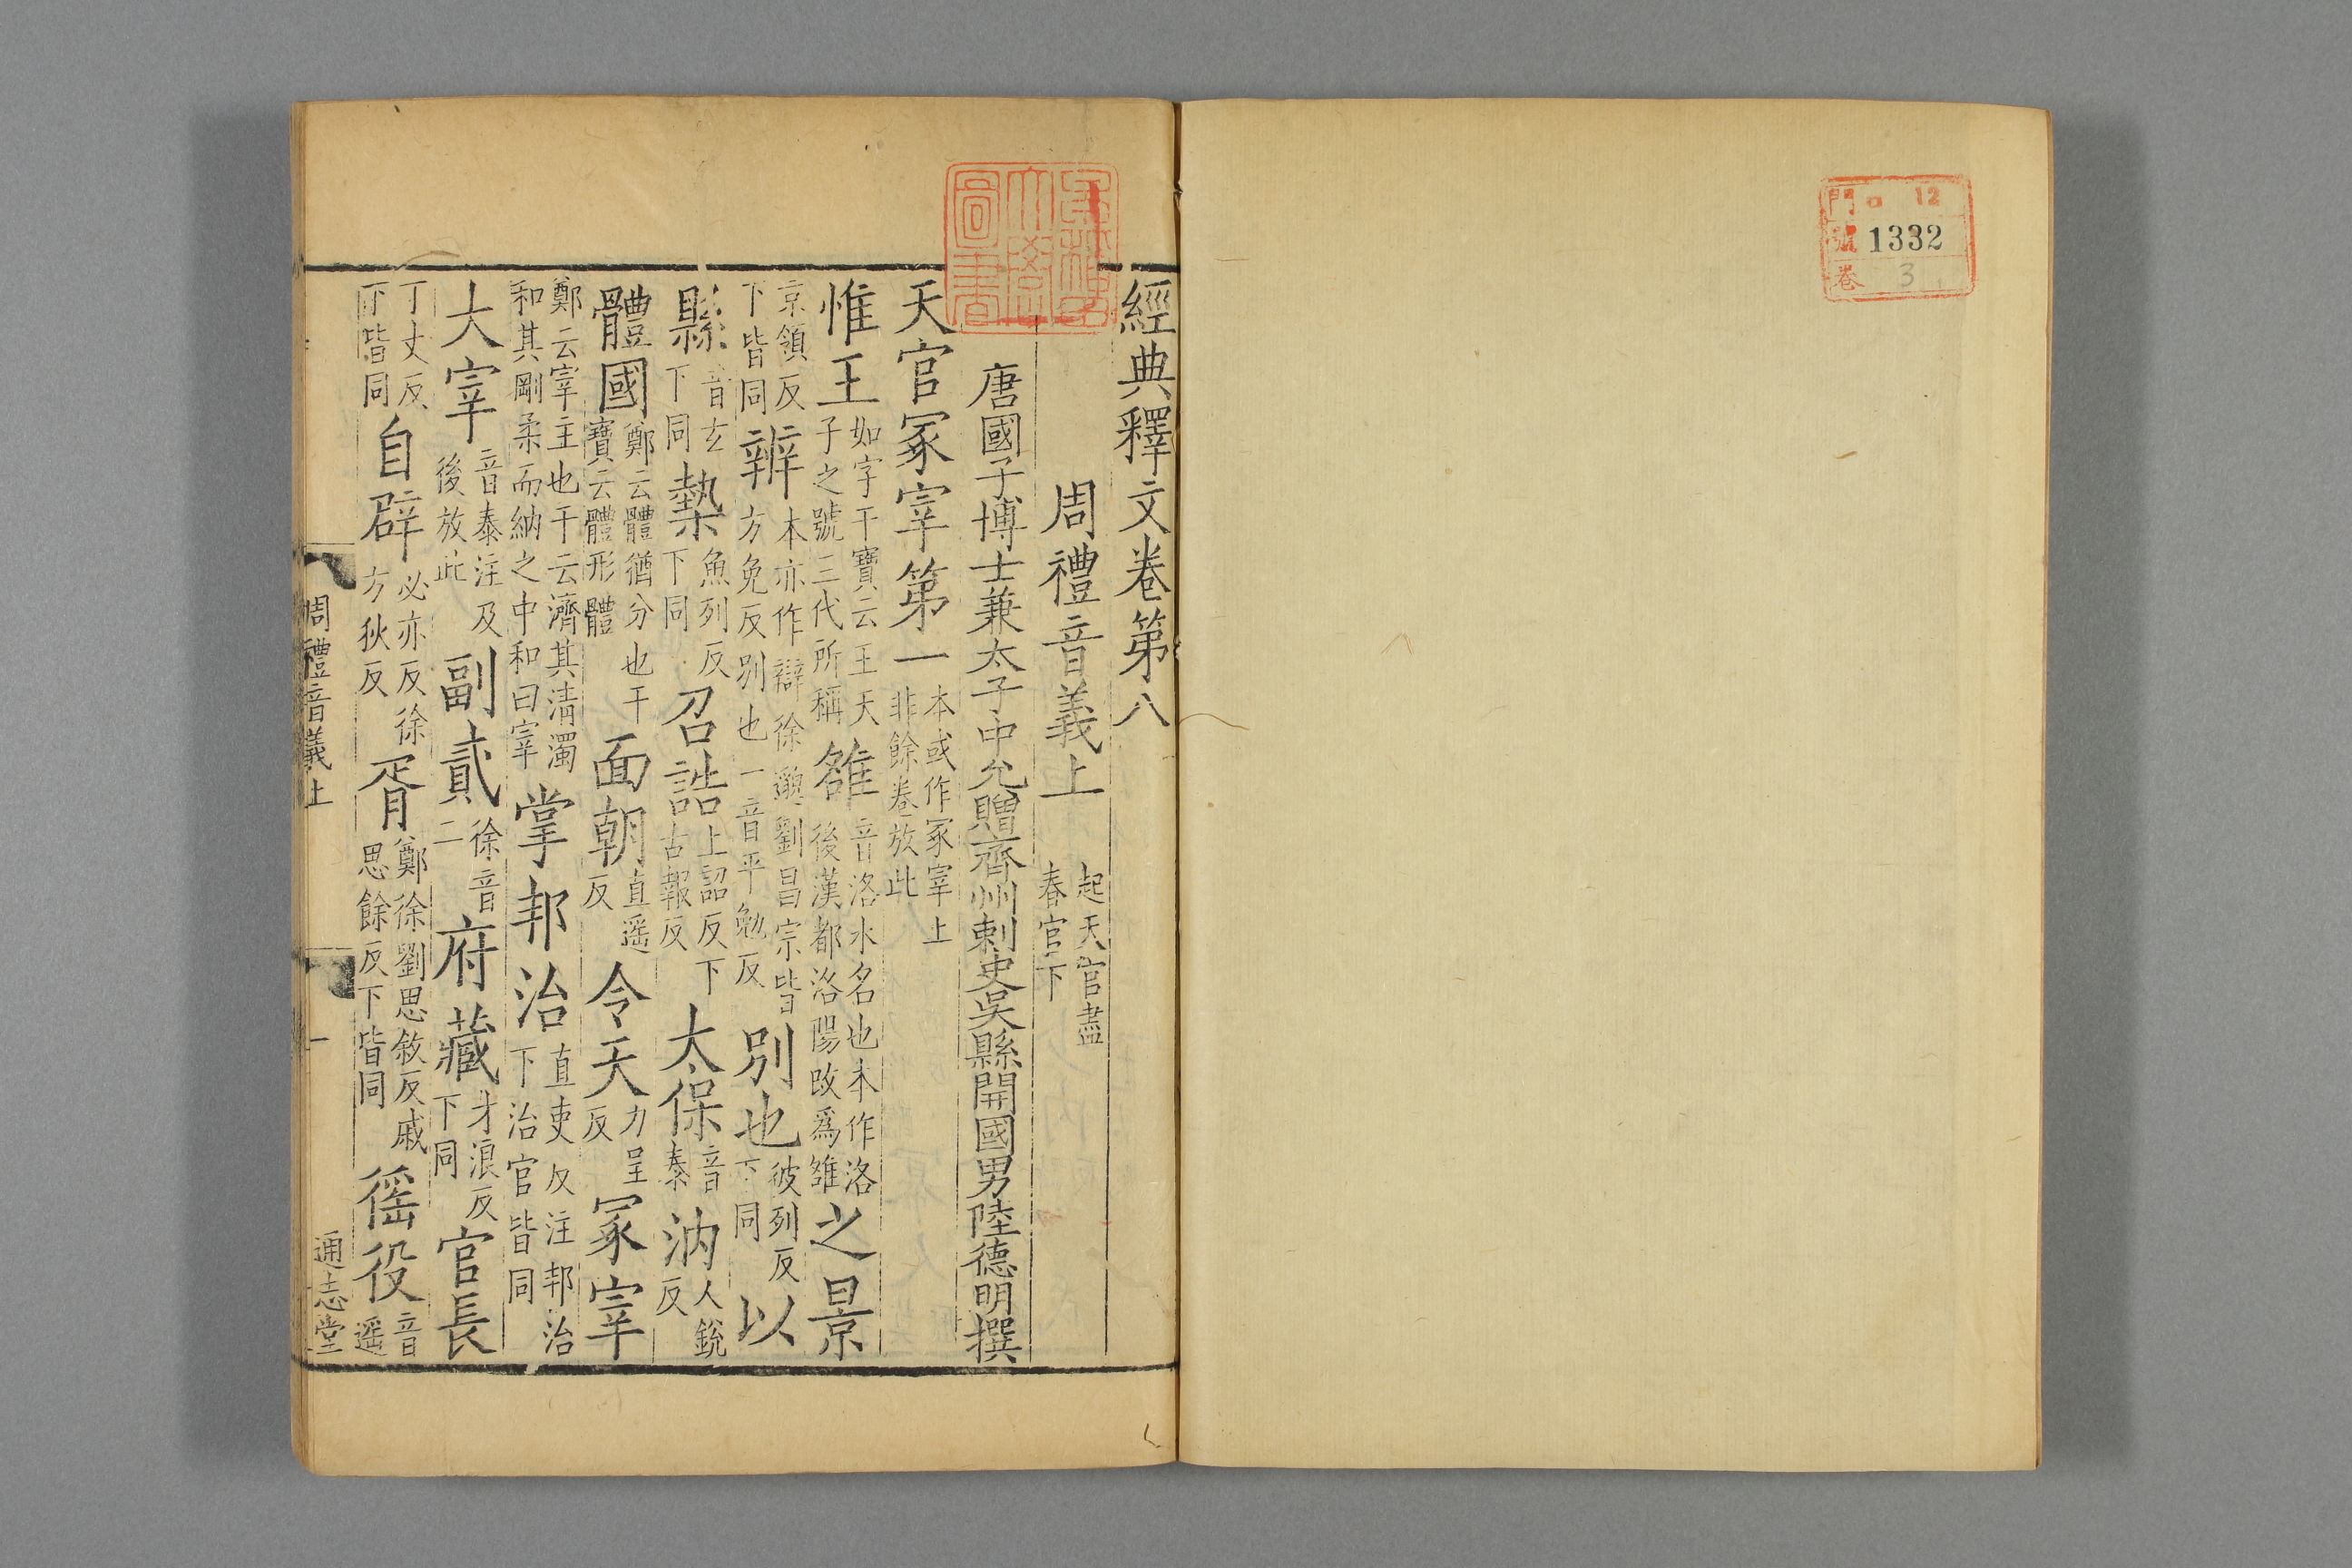 門 ロ 12
號 1332
卷 3
經典釋文卷第八
周禮音義上 起天官盡春官下
唐國子博士兼太子中允贈齊州刺史吳縣開國男陸德明撰
天官冢宰第一 本或作冢宰上非餘卷放此
惟王 如字干寶云王天子之號三代所稱 雒 音洛水名也本作洛後漢都洛陽改爲雒 之景
京領反下皆同 辨 本亦作辯徐邈劉昌宗皆方免反別也一音平勉反 別也 彼列反下同 以
縣 音玄下同 槷 魚列反下同 召誥 上詔反下古報反 太保 音泰 汭 人銳反
體國 鄭云體猶分也干寶云體形體 面朝 直遥反 令天 力呈反 冢宰
鄭云宰主也干云濟其清濁和其剛柔而納之中和曰宰 掌邦治 直吏反注邦治下治官皆同
大宰 音泰注及後放此 副貳 徐音二 府藏 才浪反下同 官長
丁丈反下皆同 自辟 必亦反徐方狄反 胥 鄭徐劉思敘反戚思餘反下皆同 徭役 音遥
周禮音義上 一 通志堂
早稻田大學圖書